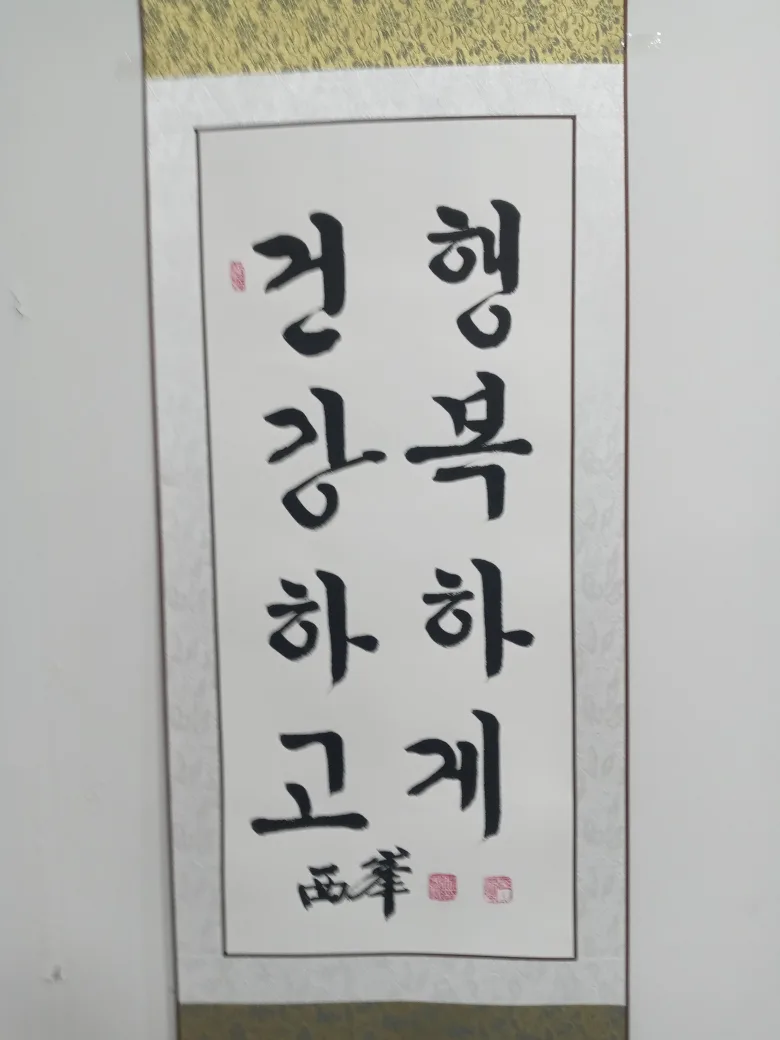 건강하고
행복하게
西峯